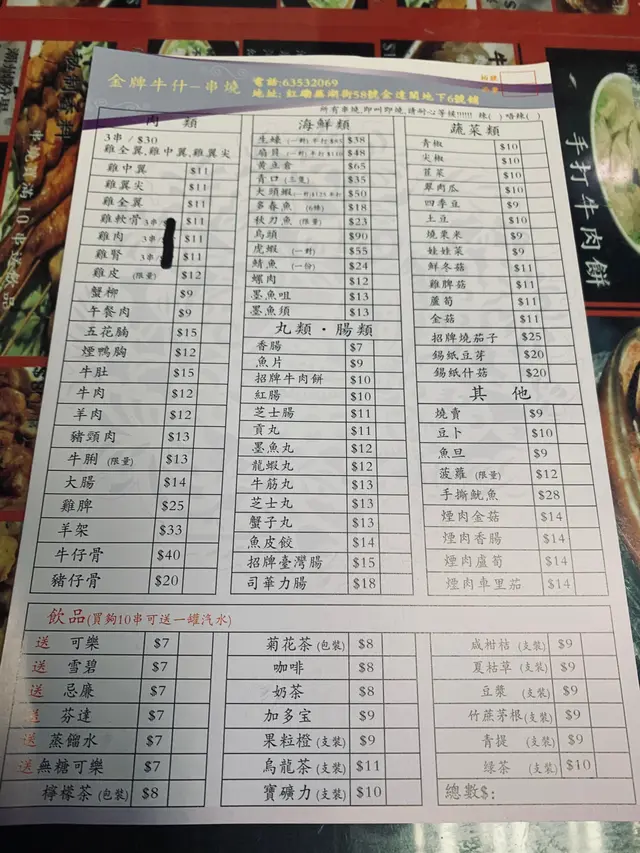 金牌牛什-串燒
電話:63532069
地址: 紅磡蕪湖街58號金達閣地下6號舖
所有串燒,即叫即燒,請耐心等候!!!!!! 辣( ) 唔辣( )
肉 類
3串 / $30
雞全翼,雞中翼,雞翼尖
雞中翼 $11
雞翼尖 $11
雞全翼 $11
雞軟骨 3串/ $11
雞肉 3串/ $11
雞腎 3串/ $11
雞皮 (限量) $12
蟹柳 $9
午餐肉 $9
五花腩 $15
煙鴨胸 $12
牛肚 $15
牛肉 $12
羊肉 $12
豬頭肉 $13
牛脷 (限量) $13
大腸 $14
雞脾 $25
羊架 $33
牛仔骨 $40
豬仔骨 $20
海鮮類
生蠔 $38
扇貝 $48
黃立倉 $65
青口 (三隻) $35
大頭蝦 $50
多春魚 (6條) $18
秋刀魚 (限量) $23
烏頭 $90
虎蝦 (一對) $55
鯖魚 (一份) $24
螺肉 $12
墨魚咀 $13
墨魚須 $13
丸類 · 腸類
香腸 $7
魚片 $9
招牌牛肉餅 $10
紅腸 $10
芝士腸 $11
貢丸 $11
墨魚丸 $12
龍蝦丸 $12
牛筋丸 $13
芝士丸 $13
蟹子丸 $13
魚皮餃 $14
招牌臺灣腸 $15
司華力腸 $18
蔬菜類
青椒 $10
尖椒 $10
韮菜 $10
翠肉瓜 $10
四季豆 $9
土豆 $10
燒粟米 $9
娃娃菜 $9
鮮冬菇 $11
雞脾菇 $11
蘆筍 $11
金菇 $11
招牌燒茄子 $25
錫紙豆芽 $20
錫紙什菇 $20
其 他
燒賣 $9
豆卜 $10
魚旦 $9
菠蘿 (限量) $12
手撕魷魚 $28
煙肉金菇 $14
煙肉香腸 $14
煙肉蘆筍 $14
煙肉車里茄 $14
飲品(買夠10串可送一罐汽水)
送 可樂 $7
送 雪碧 $7
送 忌廉 $7
送 芬達 $7
送 蒸餾水 $7
送 無糖可樂 $7
檸檬茶 (包裝) $8
菊花茶 (包裝) $8
咖啡 $8
奶茶 $8
加多宝 $9
果粒橙 (支裝) $9
烏龍茶 (支裝) $11
寶礦力 (支裝) $10
咸柑桔 (支裝) $9
夏枯草 (支裝) $9
豆漿 (支裝) $9
竹蔗茅根 (支裝) $9
青提 (支裝) $9
绿茶 (支裝) $10
總數$:
手打牛肉餅
串燒滿10串送飲品